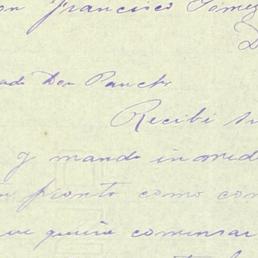 on Francisco Gómez
D
ado Don Panch
Recibí su
y mando inmed
n pronto como com
ue quiere comensar